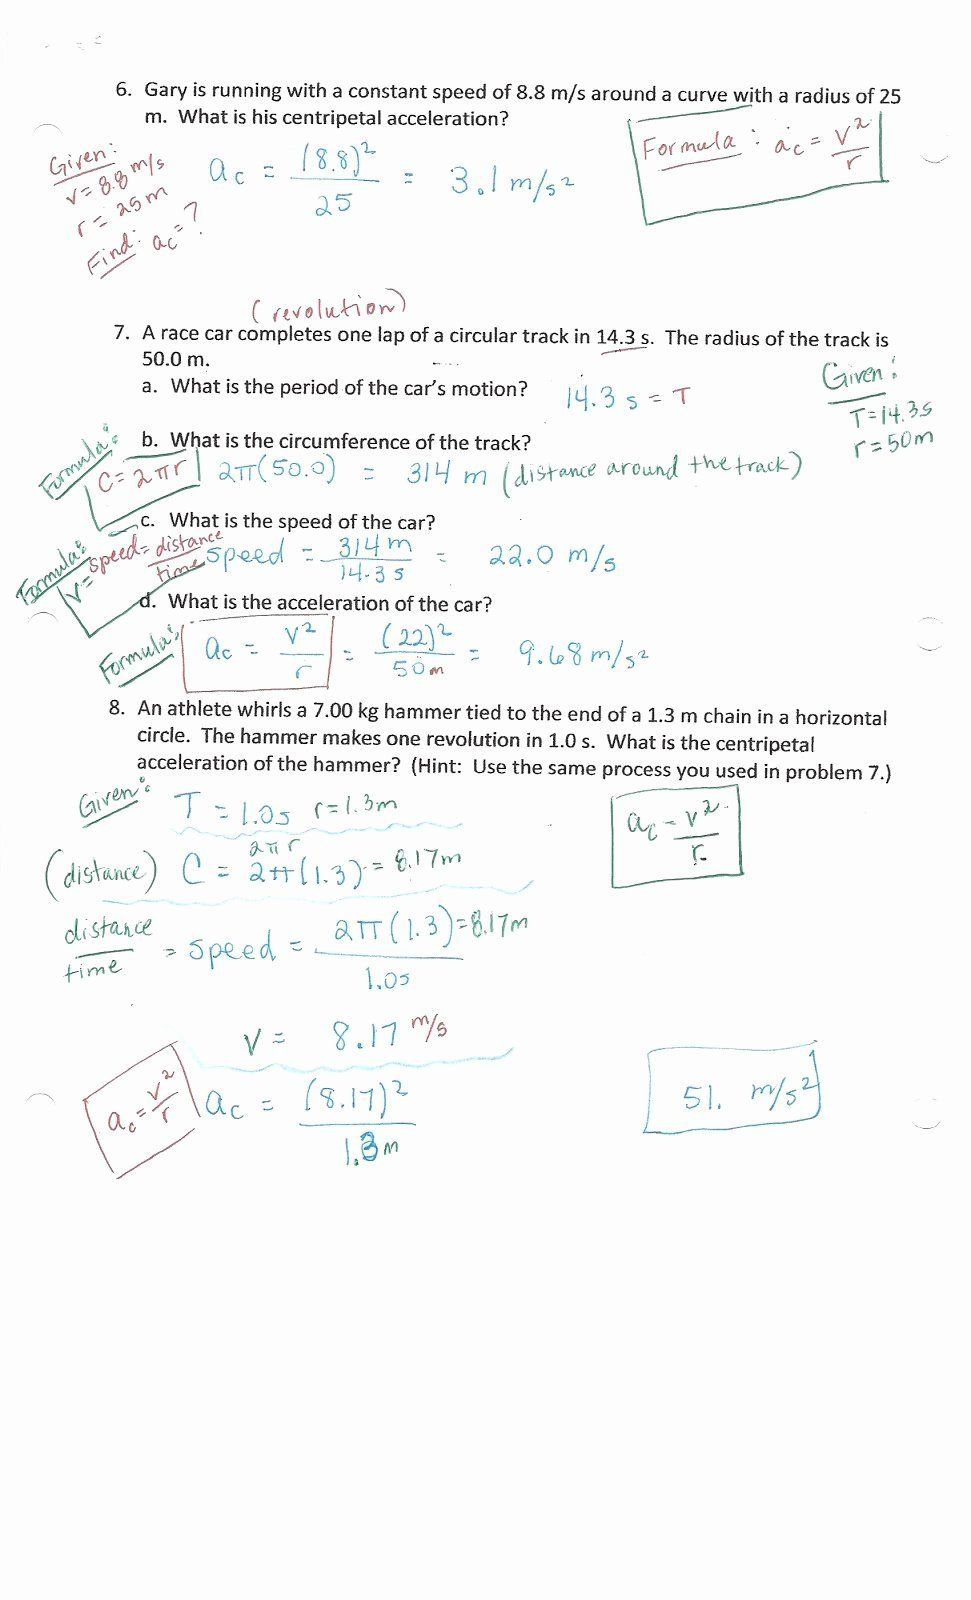 6. Gary is running with a constant speed of 8.8 m/s around a curve with a radius of 25
m. What is his centripetal acceleration?
Given:
v = 8.8 m/s
r = 25 m
Find: ac = ?
ac = (8.8)² / 25 = 3.1 m/s²
Formula: ac = v² / r
(revolution)
7. A race car completes one lap of a circular track in 14.3 s. The radius of the track is
50.0 m.
a. What is the period of the car's motion? 14.3 s = T
Given:
T = 14.3s
r = 50m
b. What is the circumference of the track?
Formula:
C = 2πr 2π(50.0) = 314 m (distance around the track)
c. What is the speed of the car?
Formula:
v = speed = distance / time speed = 314 m / 14.3 s = 22.0 m/s
d. What is the acceleration of the car?
Formula: ac = v² / r = (22)² / 50m = 9.68 m/s²
8. An athlete whirls a 7.00 kg hammer tied to the end of a 1.3 m chain in a horizontal
circle. The hammer makes one revolution in 1.0 s. What is the centripetal
acceleration of the hammer? (Hint: Use the same process you used in problem 7.)
Given: T = 1.0s r = 1.3m
ac = v² / r
2πr
(distance) C = 2π(1.3) = 8.17m
distance / time = speed = 2π(1.3) = 8.17m / 1.0s
v = 8.17 m/s
ac = v² / r
ac = (8.17)² / 1.3m
51. m/s²